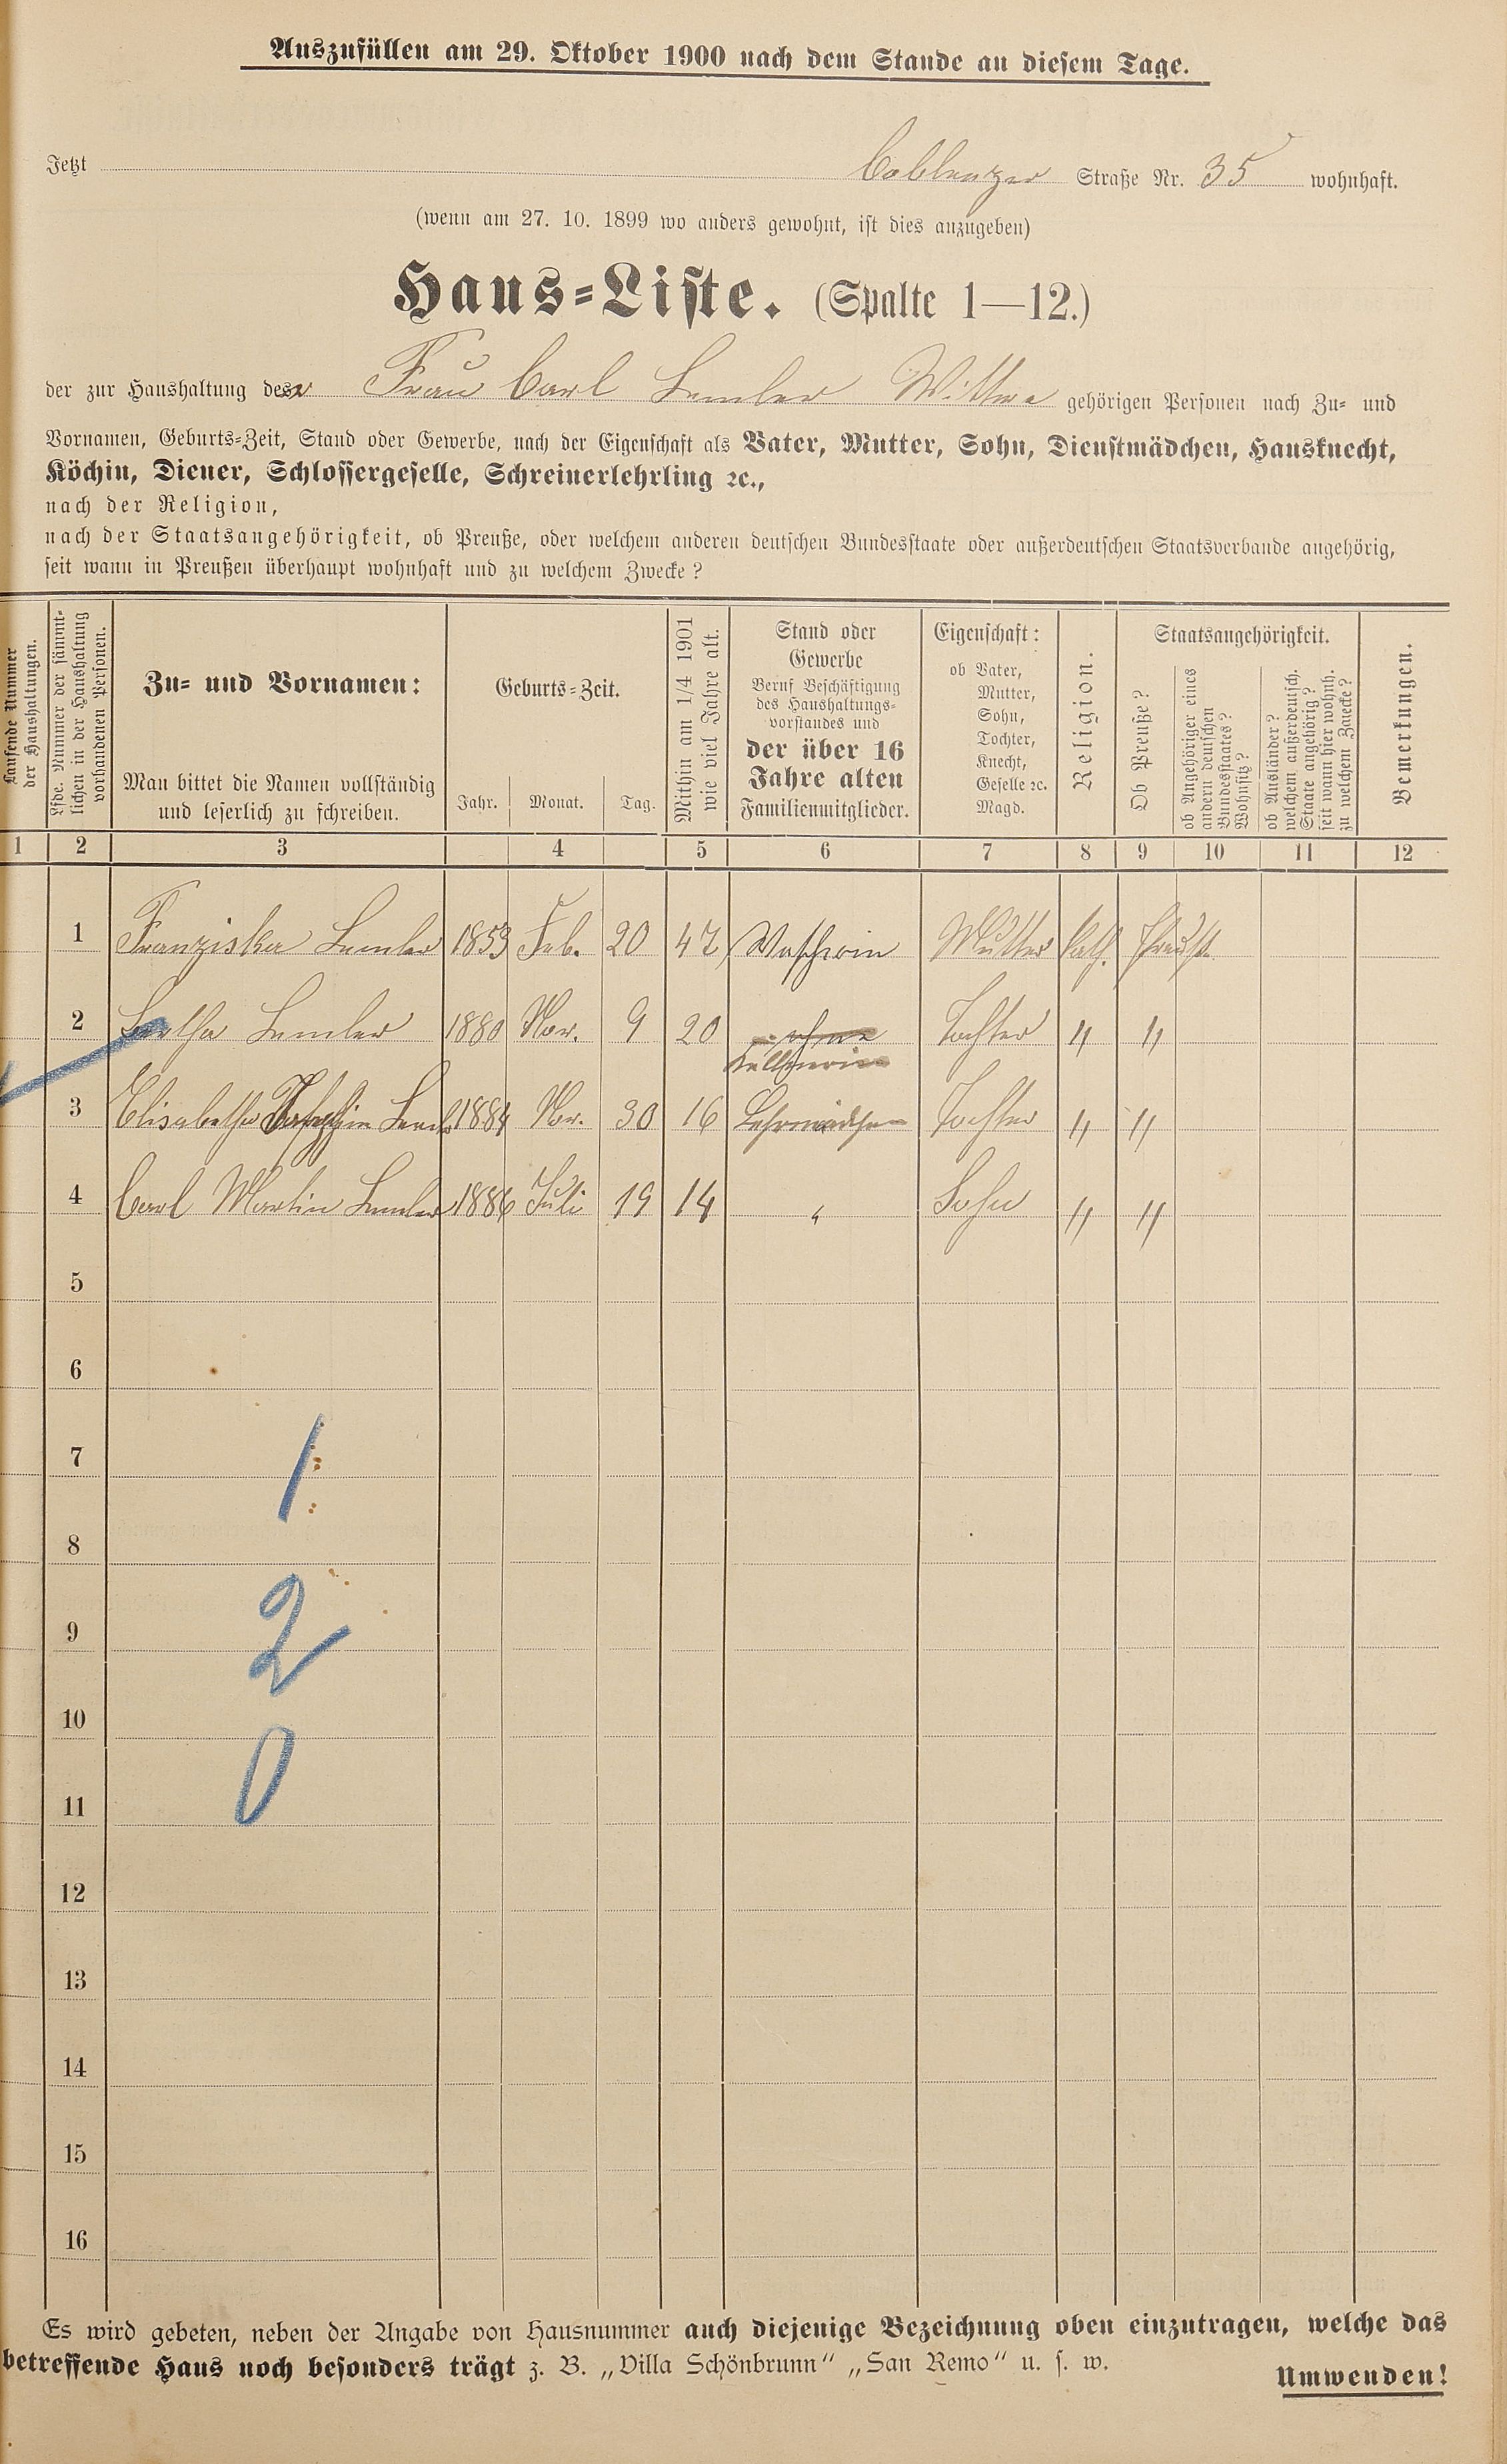 Auszufüllen am 29. Oktober 1900 nach dem Stande an diesem Tage.
Jetzt Coblenzer Straße Nr. 35 wohnhaft.
(wenn am 27. 10. 1899 wo anders gewohnt, ist dies anzugeben)
Haus-Liste. (Spalte 1—12.)
der zur Haushaltung der Frau Carl Lemler Wittwe gehörigen Personen nach Zu- und
Vornamen, Geburts-Zeit, Stand oder Gewerbe, nach der Eigenschaft als Vater, Mutter, Sohn, Dienstmädchen, Hausknecht,
Köchin, Diener, Schlossergeselle, Schreinerlehrling ꝛc.,
nach der Religion,
nach der Staatsangehörigkeit, ob Preuße, oder welchem anderen deutschen Bundesstaate oder außerdeutschen Staatsverbande angehörig,
seit wann in Preußen überhaupt wohnhaft und zu welchem Zwecke?
Laufende Nummer
der Haushaltungen.
Lfde. Nummer der sämmt-
lichen in der Haushaltung
vorhandenen Personen.
Zu- und Vornamen:
Man bittet die Namen vollständig
und leserlich zu schreiben.
Geburts-Zeit.
Jahr. Monat. Tag.
Mithin am 1/4 1901
wie viel Jahre alt.
Stand oder
Gewerbe
Beruf Beschäftigung
des Haushaltungs-
vorstandes und
der über 16
Jahre alten
Familienmitglieder.
Eigenschaft:
ob Vater,
Mutter,
Sohn,
Tochter,
Knecht,
Geselle ꝛc.
Magd.
Religion.
Staatsangehörigkeit.
Ob Preuße?
ob Angehöriger eines
andern deutschen
Bundesstaates?
Wohnsitz?
ob Ausländer?
welchem außerdeutsch.
Staate angehörig?
seit wann hier wohnh.
zu welchem Zwecke?
Bemerkungen.
1 2 3 4 5 6 7 8 9 10 11 12
1 Franziska Lemler 1853 Feb. 20 47 Wascherin Mutter Cath. Preuße
2 Bertha Lemler 1880 Nov. 9 20 ohne Tochter " "
Kellnerin
3 Elisabetha Josephin Lemler 1884 Nov. 30 16 Lehrmädchen Tochter " "
4 Carl Martin Lemler 1886 Juli 19 14 " Sohn " "
5
6
7
1
8
9
2
10
0
11
12
13
14
15
16
Es wird gebeten, neben der Angabe von Hausnummer auch diejenige Bezeichnung oben einzutragen, welche das
betreffende Haus noch besonders trägt z. B. „Villa Schönbrunn“ „San Remo“ u. s. w.
Umwenden!